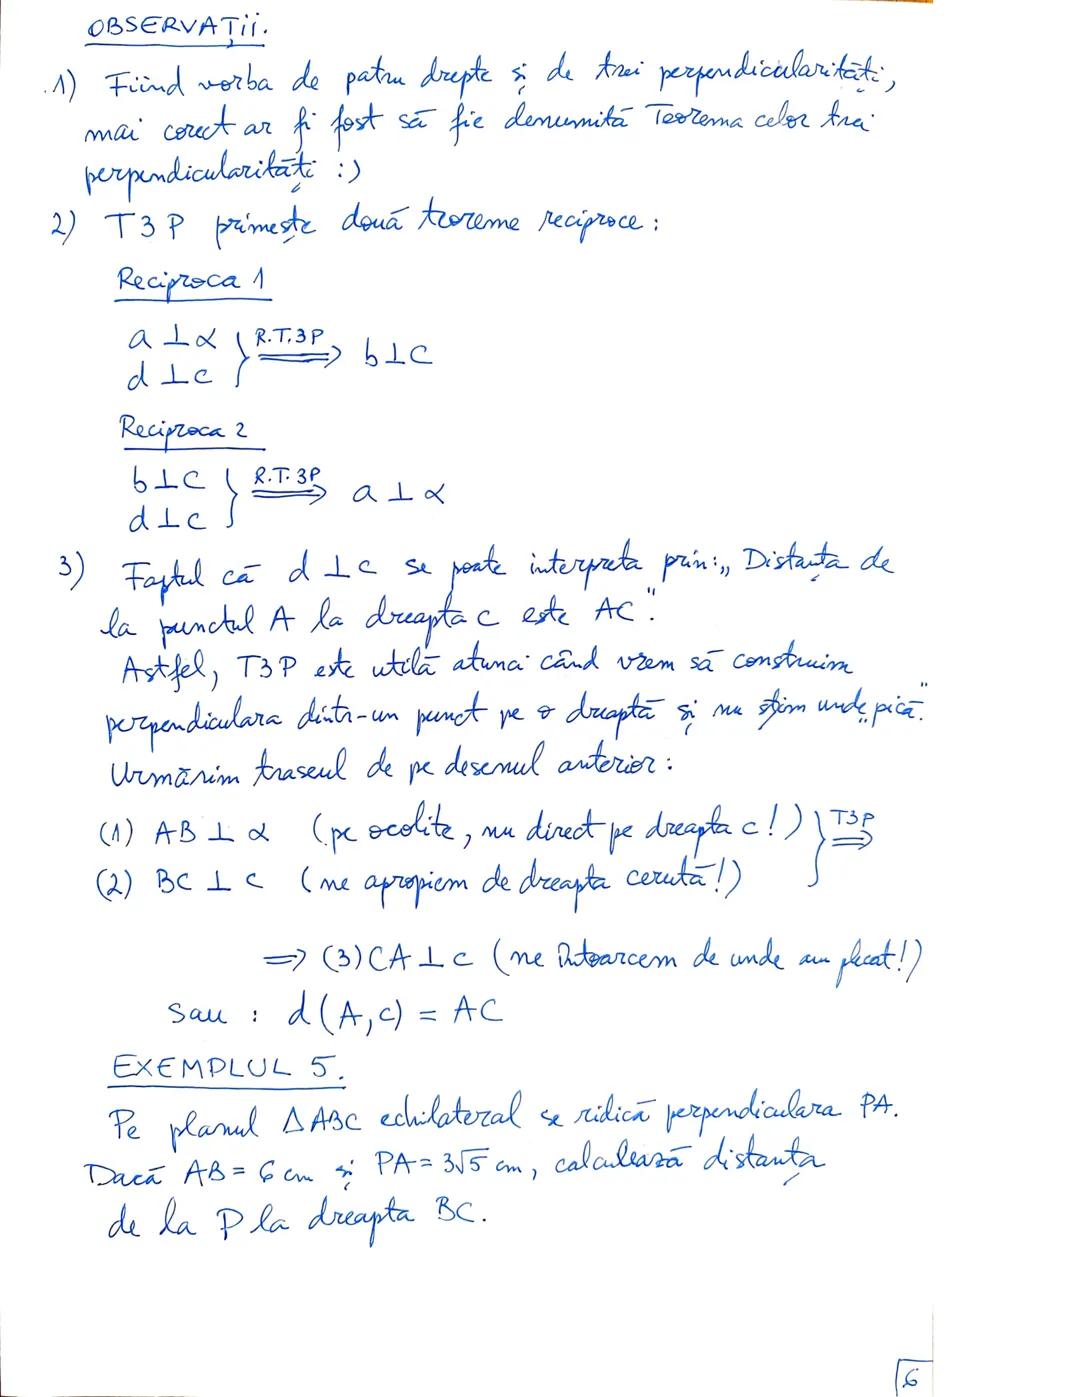 OBSERVAȚII.
1) Fiind vorba de patru drepte și de trei perpendicularități,
mai corect ar fi fost să fie denumită Teorema celor trei
perpendicularități :)
2) T3P primește două teoreme reciproce:
Reciproca 1
a ⊥ α
d ⊥ c } R.T.3P ⟹ b ⊥ c
Reciproca 2
b ⊥ c
d ⊥ c } R.T.3P ⟹ a ⊥ α
3) Faptul că d ⊥ c se poate interpreta prin: „Distanța de
la punctul A la dreapta c este AC".
Astfel, T3P este utilă atunci când vrem să construim
perpendiculara dintr-un punct pe o dreaptă și nu știm unde „pică".
Urmărim traseul de pe desenul anterior:
(1) AB ⊥ α (pe ocolite, nu direct pe dreapta c!)
(2) BC ⊥ c (ne apropiem de dreapta cerută!) } T3P ⟹
⟹ (3) CA ⊥ c (ne întoarcem de unde am plecat!)
sau : d(A,c) = AC
EXEMPLUL 5.
Pe planul △ABC echilateral se ridică perpendiculara PA.
Dacă AB = 6 cm și PA = 3√5 cm, calculează distanța
de la P la dreapta BC.
6